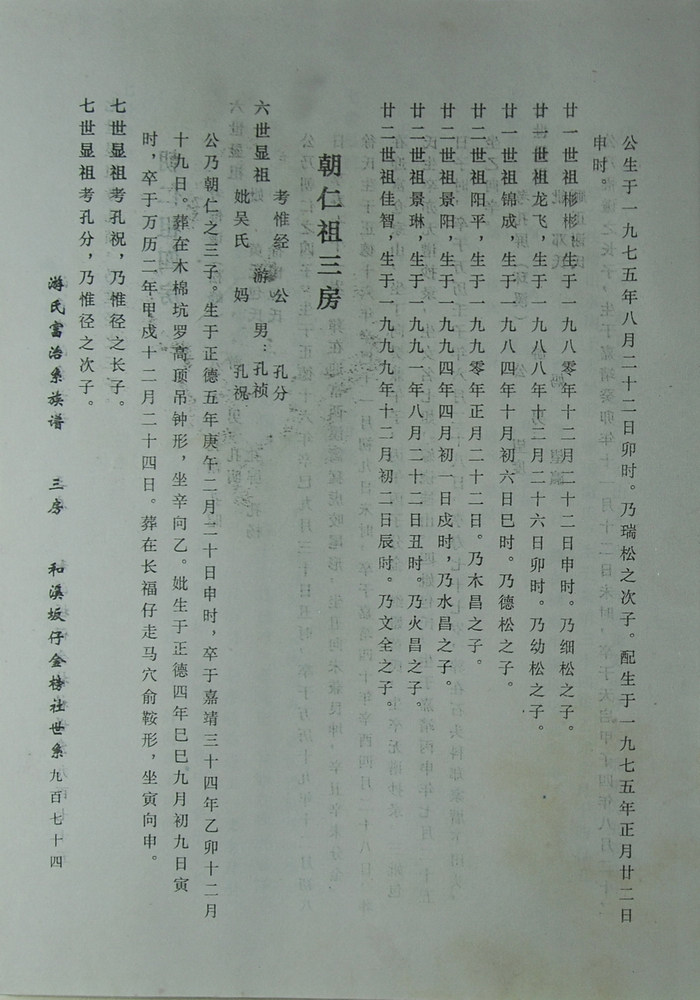 公生于一九七五年八月二十二日卯时。乃瑞松之次子。配生于一九七五年正月廿二日
申时。
廿一世祖彬彬,生于一九八零年十二月二十二日申时。乃细松之子。
廿一世祖龙飞,生于一九八八年十二月二十六日卯时。乃幼松之子。
廿一世祖锦成,生于一九八四年十月初六日巳时。乃德松之子。
廿二世祖阳平,生于一九九零年正月二十二日。乃木昌之子。
廿二世祖景阳,生于一九九四年四月初一日戌时,乃水昌之子。
廿二世祖景琳,生于一九九一年八月二十二日丑时。乃火昌之子。
廿二世祖佳智,生于一九九九年十二月初二日辰时。乃文全之子。
朝仁祖三房
考惟经 公 孔分
六世显祖 游 男:孔祯
妣吴氏 妈 孔祝
公乃朝仁之三子。生于正德五年庚午二月二十日申时,卒于嘉靖三十四年乙卯十二月
十九日。葬在木棉坑罗高顶吊钟形,坐辛向乙。妣生于正德四年巳巳九月初九日寅
时,卒于万历二年甲戍十二月二十四日。葬在长福仔走马穴俞鞍形,坐寅向申。
七世显祖考孔祝,乃惟径之长子。
七世显祖考孔分,乃惟径之次子。
游氏富治系族谱 三房 和溪坂仔金榜社世系 九百七十四